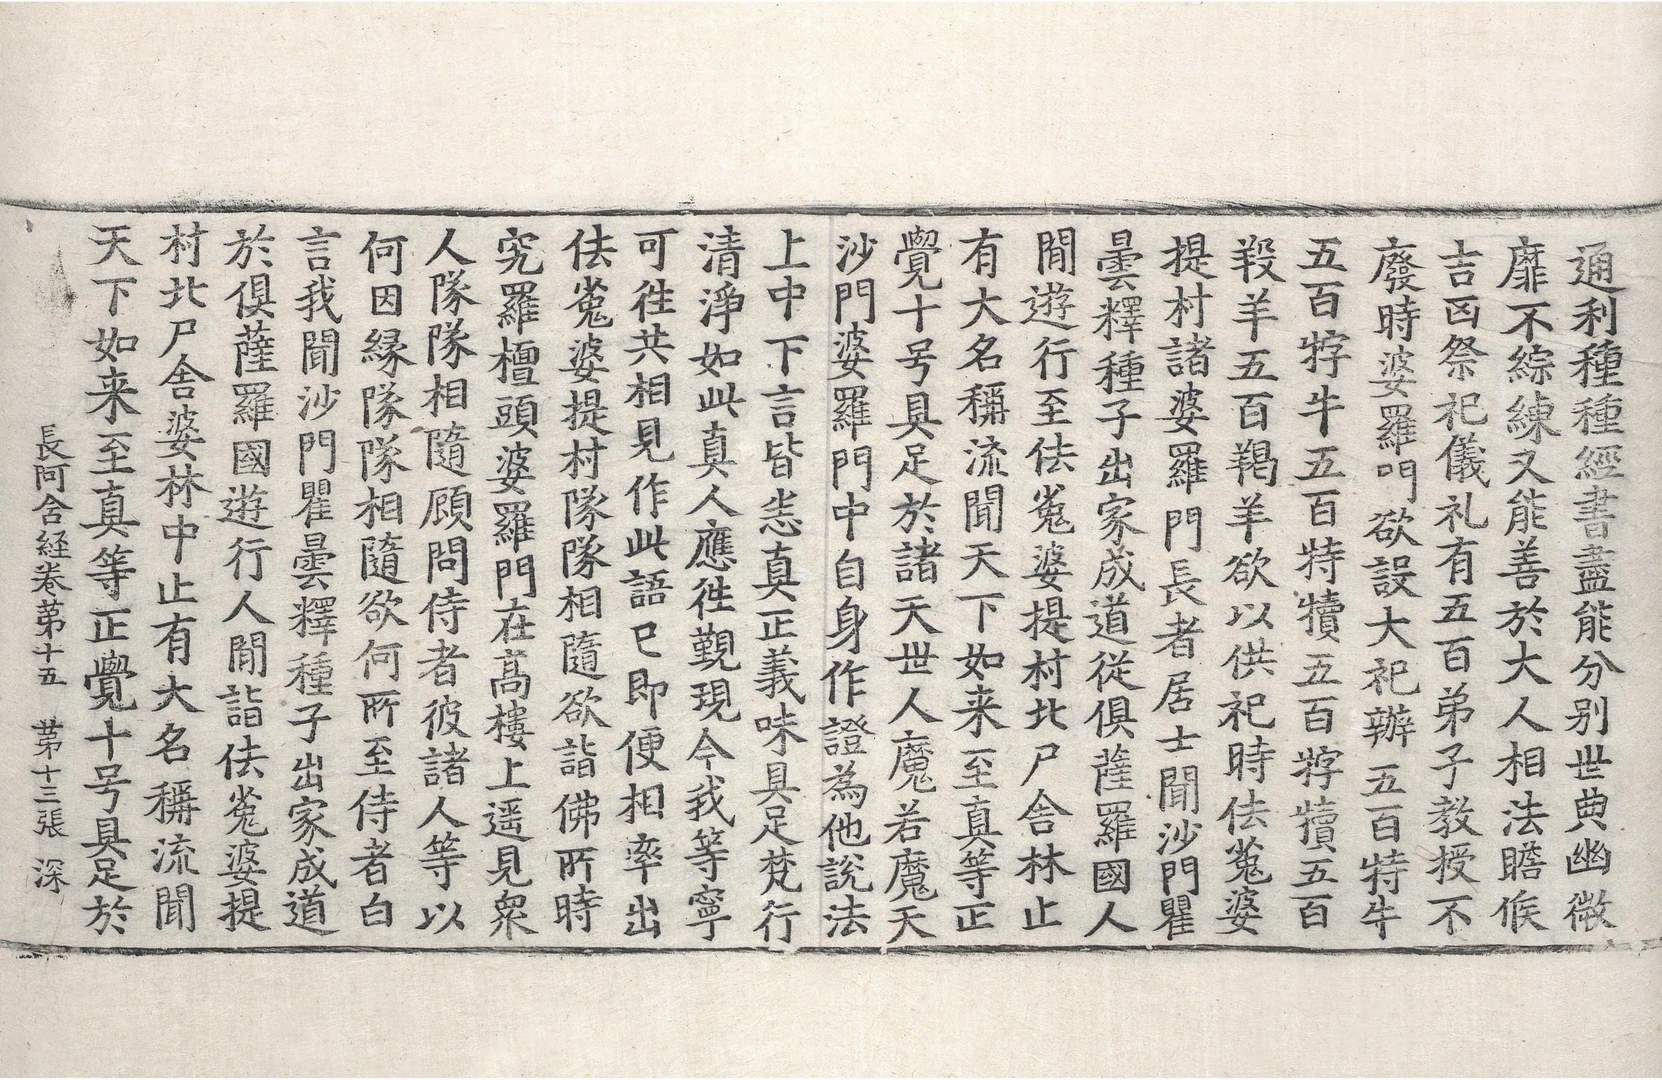 通利種種經書盡能分別世典幽微
靡不綜練又能善於大人相法瞻候
吉凶祭祀儀礼有五百弟子教授不
廢時婆羅門欲設大祀辦五百特牛
五百牸牛五百特犢五百牸犢五百
羖羊五百羯羊欲以供祀時佉㝹婆
提村諸婆羅門長者居士聞沙門瞿
曇釋種子出家成道從俱薩羅國人
間遊行至佉㝹婆提村北尸舍林止
有大名稱流聞天下如来至真等正
覺十号具足於諸天世人魔若魔天
沙門婆羅門中自身作證為他說法
上中下言皆悉真正義味具足梵行
清淨如此真人應徃覲現今我等寧
可徃共相見作此語已即便相率出
佉㝹婆提村隊隊相隨欲詣佛所時
究羅檀頭婆羅門在高樓上遥見衆
人隊隊相隨顧問侍者彼諸人等以
何因縁隊隊相隨欲何所至侍者白
言我聞沙門瞿曇釋種子出家成道
於俱薩羅國遊行人間詣佉㝹婆提
村北尸舍婆林中止有大名稱流聞
天下如来至真等正覺十号具足於
長阿含経卷第十五　第十三張　深